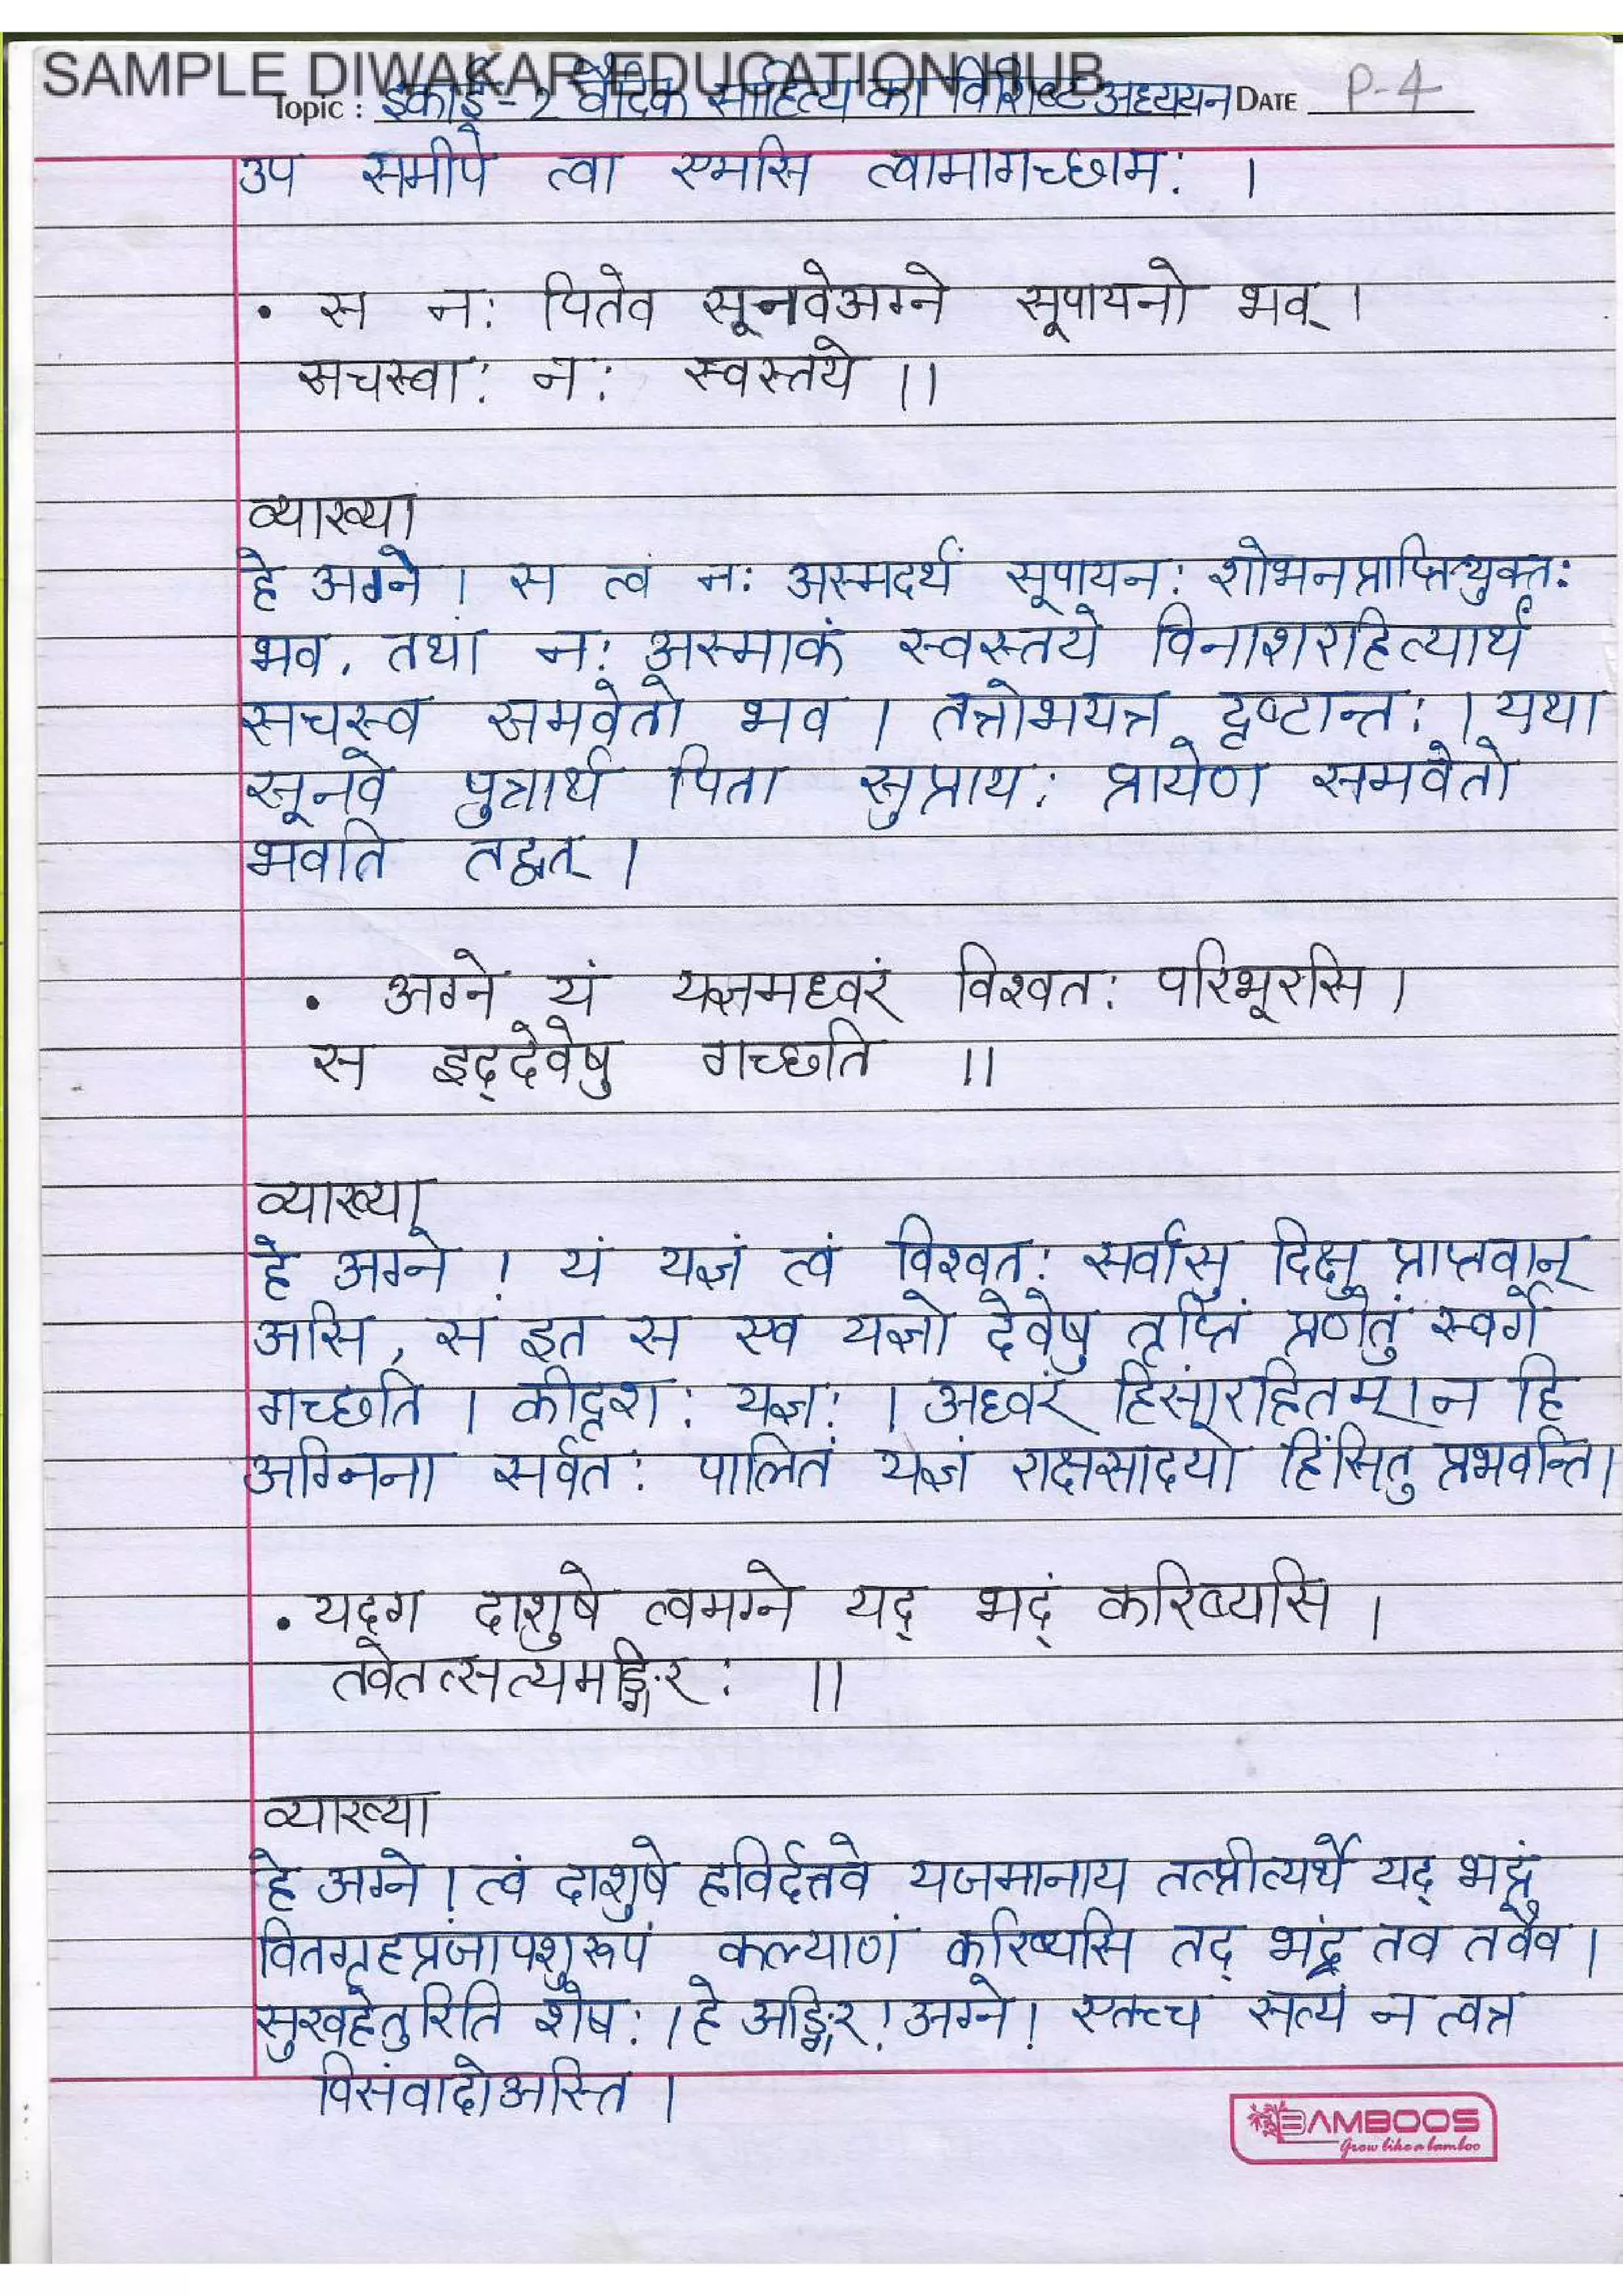 SAMPLE DIWAKAR EDUCATION HUB
Topic : इकाई - २ वैदिक साहित्य का विशिष्ट अध्ययन DATE P-4
उप समीपे त्वा एमसि त्वामागच्छाम: ।
• स न: पितेव सूनवेअग्ने सूपायनो भव् ।
सचस्वा: न: स्वस्तये ।।
व्याख्या
हे अग्ने । स त्वं न: अस्मदर्थं सूपायन: शोभनप्राप्तियुक्त:
भव, तथां न: अस्माकं स्वस्तये विनाशराहित्यार्थं
सचस्व समवेतो भव । तत्रोभयत्र दृष्टान्त: । यथा
सूनवे पुत्रार्थं पिता सुप्राय: प्रायेण समवेतो
भवति तद्वत् ।
• अग्ने यं यज्ञमध्वरं विश्वत: परिभूरसि ।
स इद्देवेषु गच्छति ।।
व्याख्या
हे अग्ने ! यं यज्ञं त्वं विश्वत: सर्वासु दिक्षु प्राप्तवान्
असि, स इत स एव यज्ञो देवेषु तृप्तिं प्रणेतुं स्वर्गे
गच्छति । कीदृश: यज्ञ: । अध्वरं हिंसारहितम् । न हि
अग्निना सर्वत: पालितं यज्ञं राक्षसादयो हिंसितु प्रभवन्ति ।
• यद्ग दाशुषे त्वमग्ने यद् भद्रं करिष्यसि ।
तवेतत्सत्यमङ्गिर: ।।
व्याख्या
हे अग्ने । त्वं दाशुषे हविर्दत्तवे यजमानाय तत्प्रीत्यर्थे यद् भद्रं
वितगृहप्रजापशुरूपं कल्याणं करिष्यसि तद् भद्रं तव तवैव ।
सुखहेतुरिति शेष: । हे अङ्गिर ! अग्ने ! एतच्च सत्यं न त्वत्र
विसंवादोअस्ति ।
BAMBOOS
Grow like a bamboo